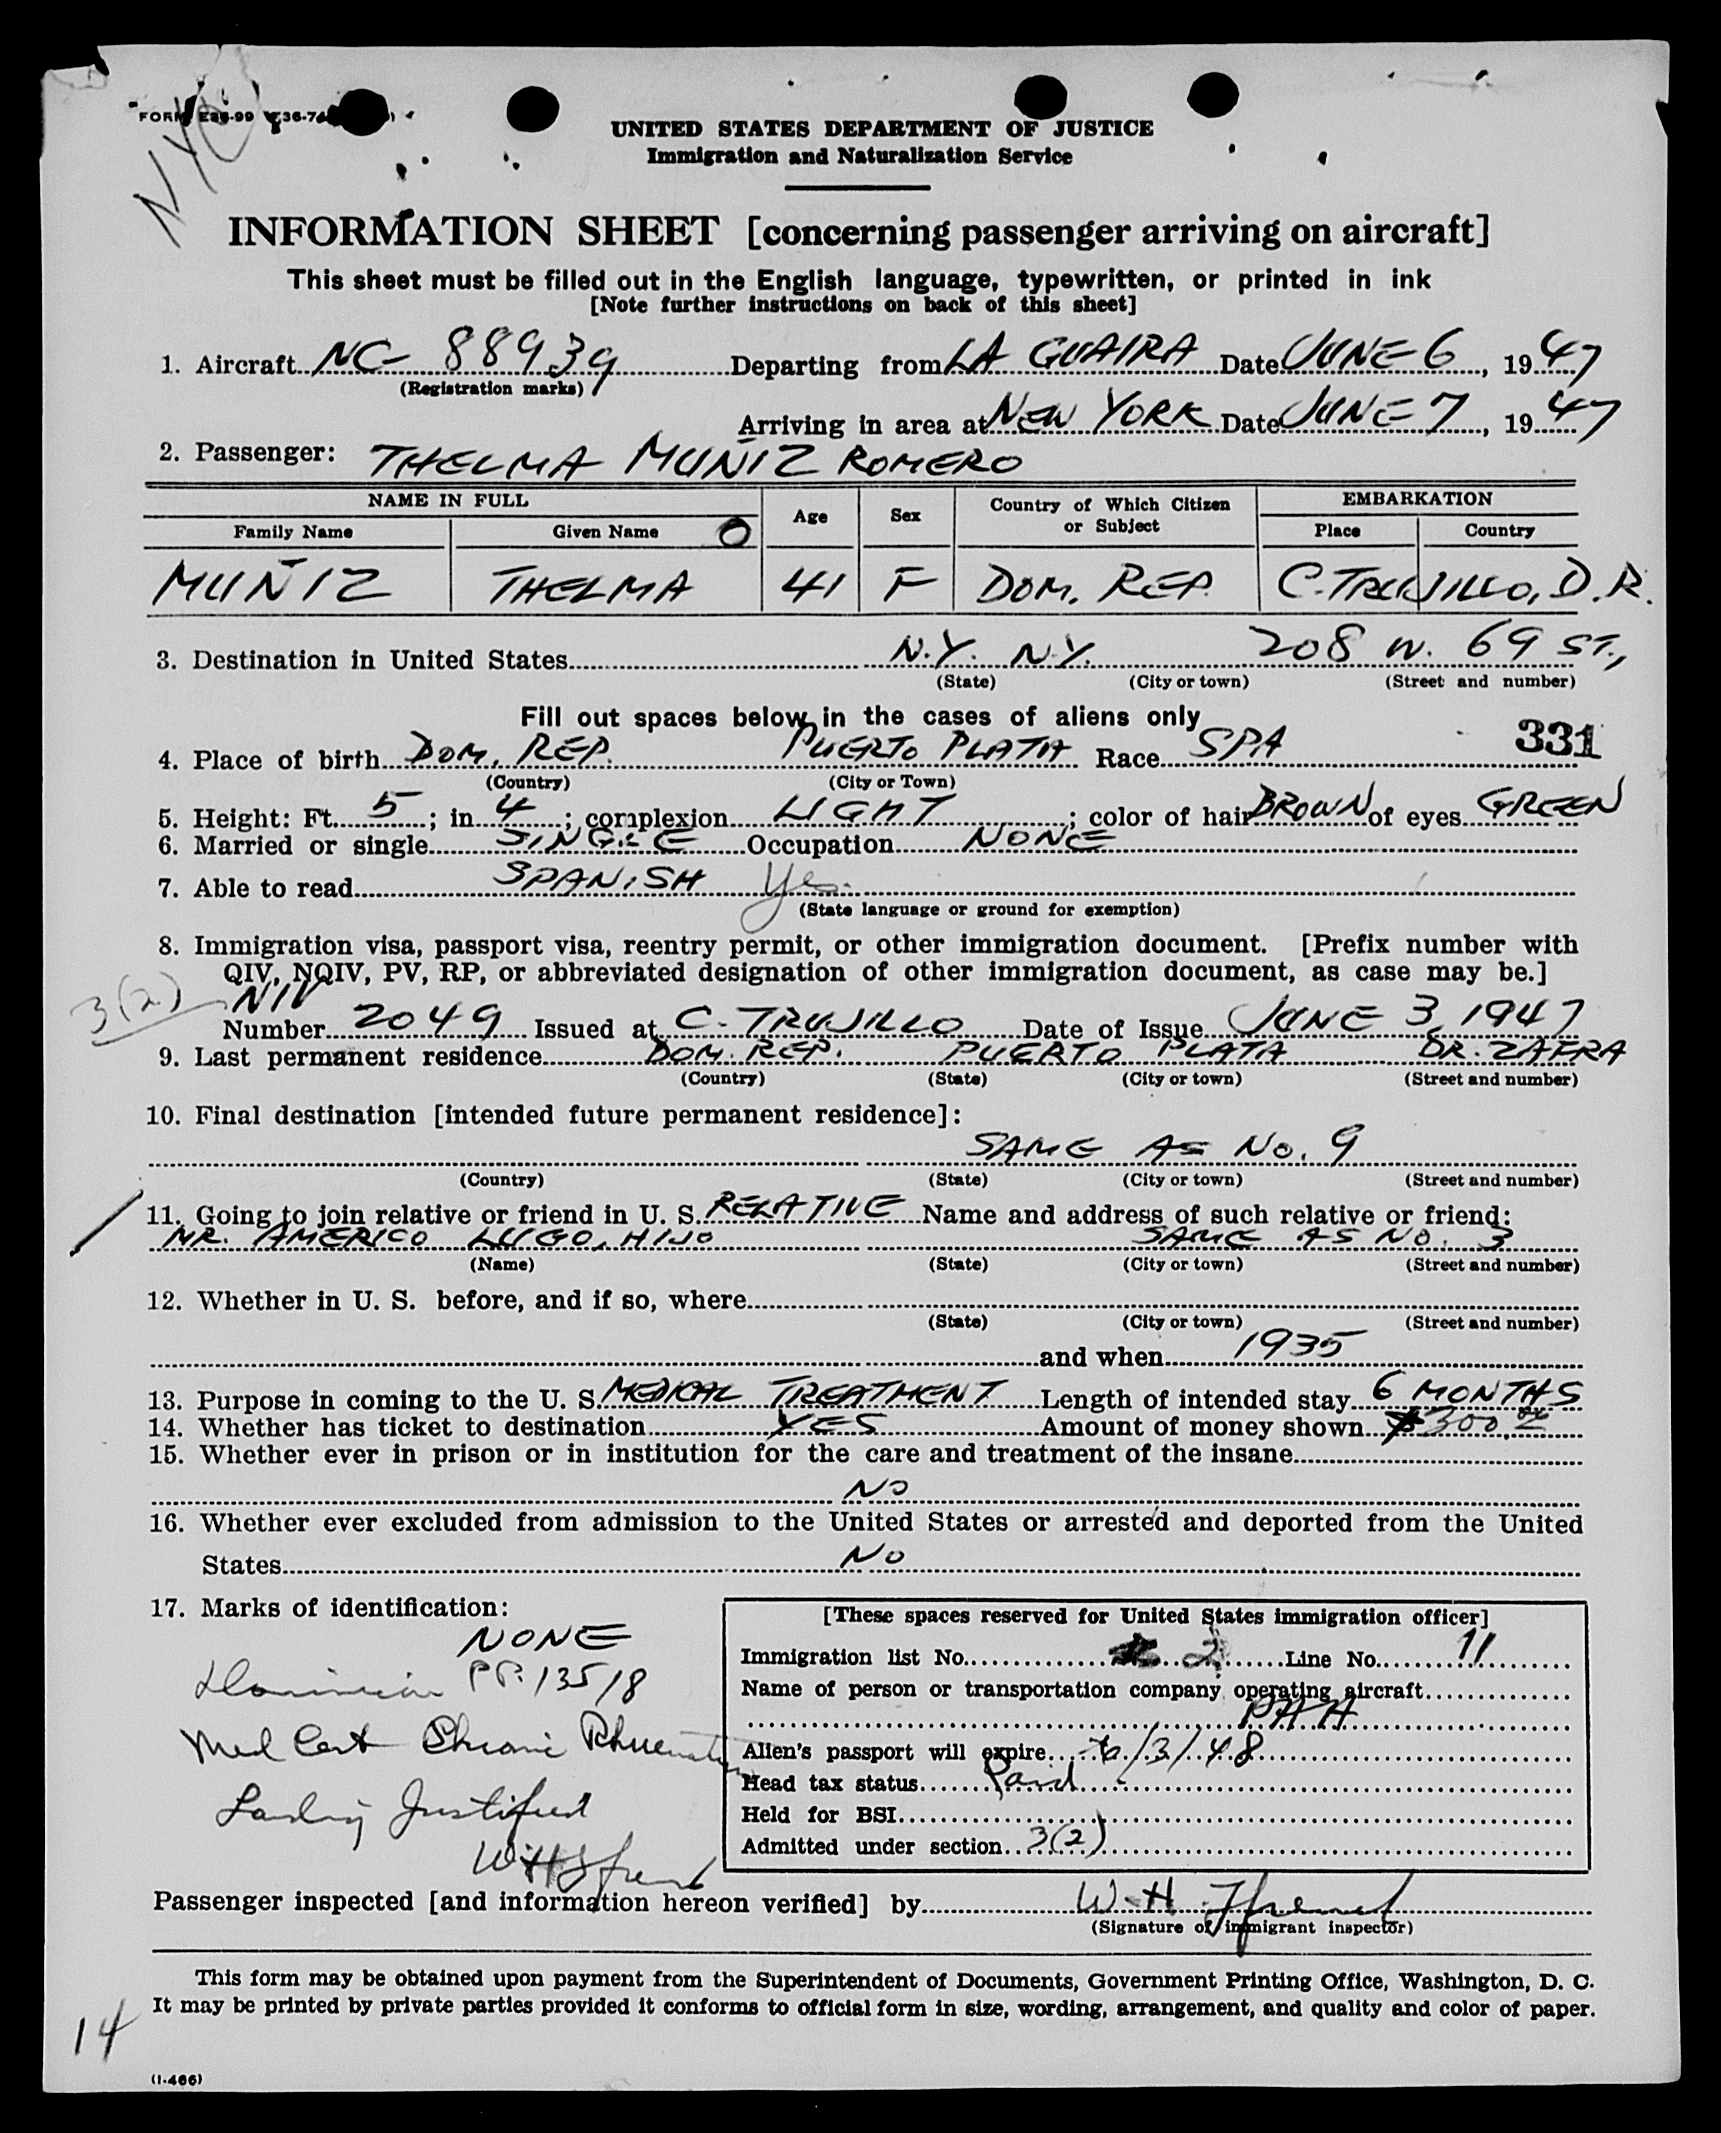 NYC
UNITED STATES DEPARTMENT OF JUSTICE
Immigration and Naturalization Service
INFORMATION SHEET [concerning passenger arriving on aircraft]
This sheet must be filled out in the English language, typewritten, or printed in ink
[Note further instructions on back of this sheet]
1. Aircraft NC 88939 Departing from LA GUAIRA Date JUNE 6, 1947
(Registration marks)
Arriving in area at NEW YORK Date JUNE 7, 1947
2. Passenger: THELMA MUNIZ ROMERO
NAME IN FULL Age Sex Country of Which Citizen or Subject EMBARKATION
Family Name Given Name Place Country
MUÑIZ THELMA 41 F DOM. REP. C. TRUJILLO, D.R.
3. Destination in United States N.Y. N.Y. 208 W. 69 ST.,
(State) (City or town) (Street and number)
Fill out spaces below in the cases of aliens only
331
4. Place of birth DOM. REP. PUERTO PLATA Race SPA
(Country) (City or Town)
5. Height: Ft. 5; in. 4; complexion LIGHT; color of hair BROWN of eyes GREEN
6. Married or single SINGLE Occupation NONE
7. Able to read SPANISH Yes.
(State language or ground for exemption)
8. Immigration visa, passport visa, reentry permit, or other immigration document. [Prefix number with
QIV, NQIV, PV, RP, or abbreviated designation of other immigration document, as case may be.]
3(2) NIV
Number 2049 Issued at C. TRUJILLO Date of Issue JUNE 3, 1947
9. Last permanent residence DOM. REP. PUERTO PLATA DR. ZAFRA
(Country) (State) (City or town) (Street and number)
10. Final destination [intended future permanent residence]:
SAME AS No. 9
(Country) (State) (City or town) (Street and number)
11. Going to join relative or friend in U. S. RELATIVE Name and address of such relative or friend:
MR. AMERICO LUGO, HIJO SAME AS NO. 3
(Name) (State) (City or town) (Street and number)
12. Whether in U. S. before, and if so, where
(State) (City or town) (Street and number)
and when 1935
13. Purpose in coming to the U. S. MEDICAL TREATMENT Length of intended stay 6 MONTHS
14. Whether has ticket to destination YES Amount of money shown $300.00
15. Whether ever in prison or in institution for the care and treatment of the insane
NO
16. Whether ever excluded from admission to the United States or arrested and deported from the United
States NO
17. Marks of identification:
NONE
Dominican PP. 13518
Med Cert Chronic Rhuematism
Landing Justified
[These spaces reserved for United States immigration officer]
Immigration list No. 2 Line No. 11
Name of person or transportation company operating aircraft
PAA
Alien's passport will expire 6/3/48
Head tax status Paid
Held for BSI
Admitted under section 3(2)
Passenger inspected [and information hereon verified] by W. H.
(Signature of immigrant inspector)
This form may be obtained upon payment from the Superintendent of Documents, Government Printing Office, Washington, D. C.
It may be printed by private parties provided it conforms to official form in size, wording, arrangement, and quality and color of paper.
14
(I-466)